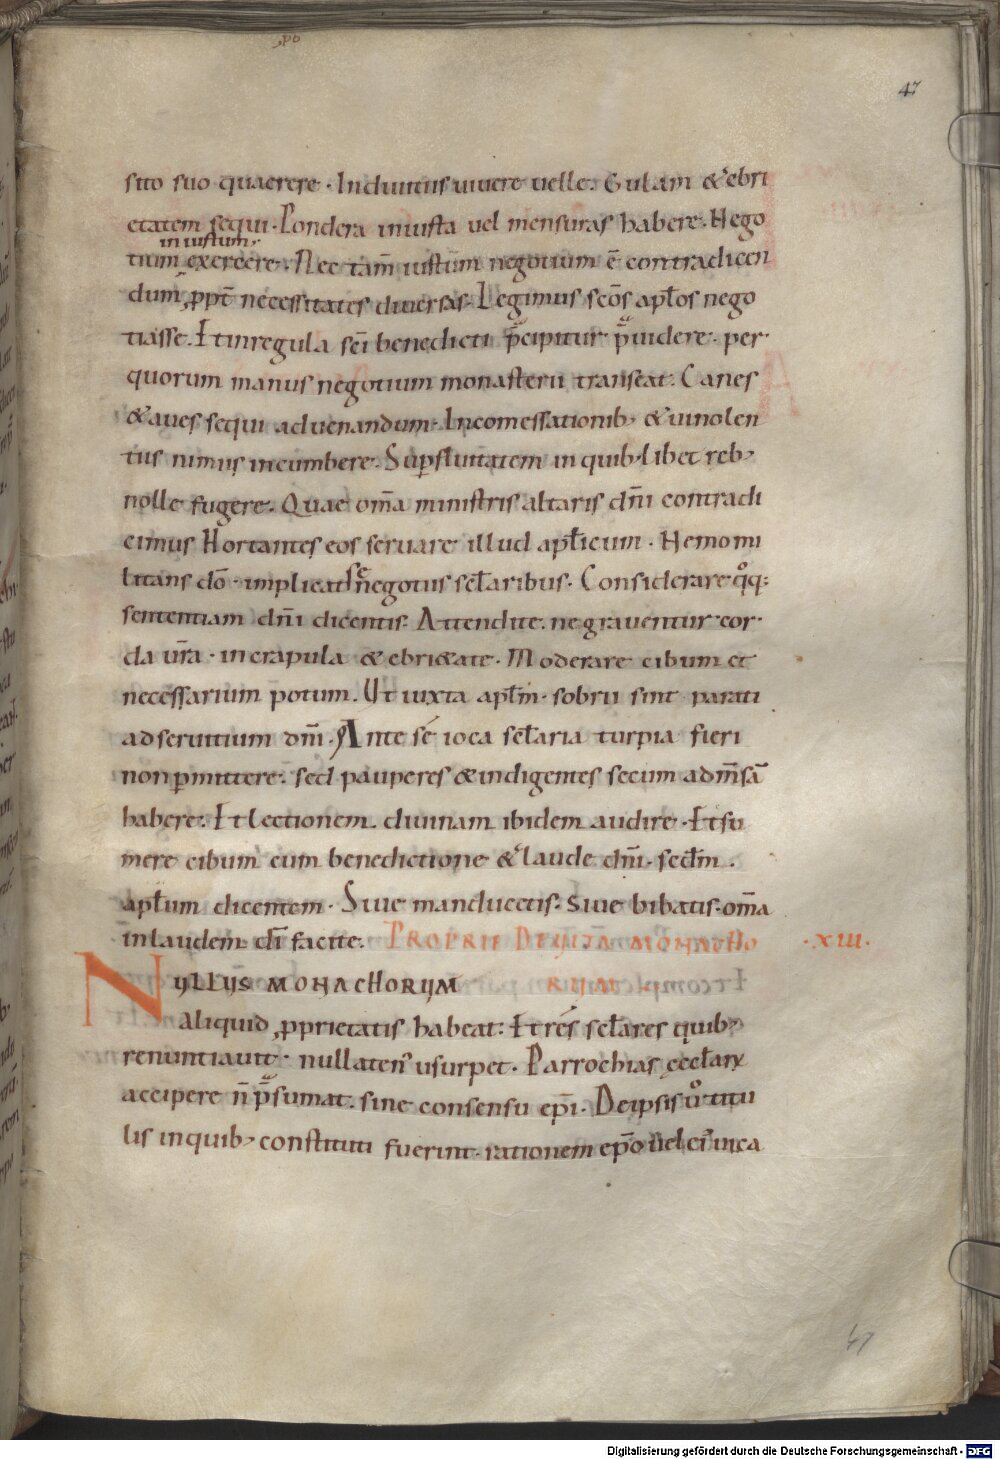 47
sito suo quaerere · Induitiis uiuere uelle. Gulam & ebri
etatem sequi · Pondera iniusta uel mensuras habere · Nego
iniustum
tium exercere · Nec tam̄ iustum negotium ē contradicen
dum, ꝓpt̄ necessitates diuersas · Legimus sc̄os apl̄os nego
tiasse. Et in regula sc̄i benedicti p̄cipitur p̄uidere · per
quorum manus negotium monasterii transeat. Canes
& aues sequi aduenandum · In comessationib; & uinolen
tiis nimiis incumbere. Suꝑfluitatem in quib;libet reb;
nolle fugere. Quae om̄a ministris altaris dn̄i contradi
cimus Hortantes eos seruare illud apl̄icum · Nemo mi
litans dō · implicat se negotiis scl̄aribus. Considerare qͦq;
sententiam dn̄i dicentis. Attendite. ne grauentur cor
da ur̄a · in crapula & ebri&ate · Moderare cibum et
necessarium potum. Ut iuxta apl̄m · sobrii sint parati
ad seruitium dn̄i · Ante sé ioca scl̄aria turpia fieri
non ꝑmittere. sed pauperes & indigentes secum ad m̄sā
habere. Et lectionem diuinam ibidem audire · Et su
mere cibum cum benedictione & laude dn̄i · secd̄m .
apl̄um dicentem · Siue manducetis. Siue bibatis. om̄a
in laudem dī facite. PROPRIE DE UITA MONACHO · XIII ·
NULLUS MONACHORUM RUM
aliquid ꝓprietatis habeat. Et rés scl̄ares quib;
renuntiauit · nullaten' usurpet · Parrochias ęccl̄arꝝ
accipere n̄ p̄sumat. sine consensu ep̄i. De ipsis uͦ titu
lis in quib; constituti fuerint · rationem ep̄o uel ei'
47
Digitalisierung gefördert durch die Deutsche Forschungsgemeinschaft - DFG